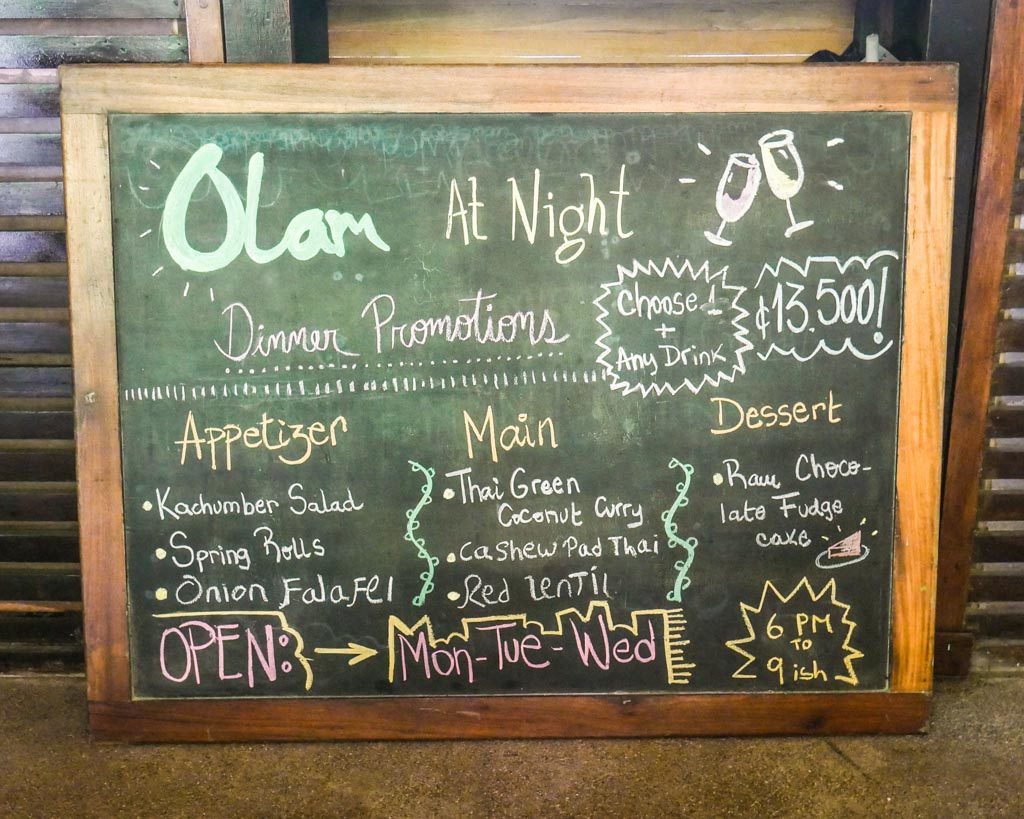 Olam At Night
Dinner Promotions
Choose 1
+
Any Drink
₡13.500!
Appetizer
• Kachumber Salad
• Spring Rolls
• Onion Falafel
Main
• Thai Green
Coconut Curry
• Cashew Pad Thai
• Red Lentil
Dessert
• Raw Choco-
late Fudge
cake
OPEN: → Mon-Tue-Wed
6 PM
TO
9 ish